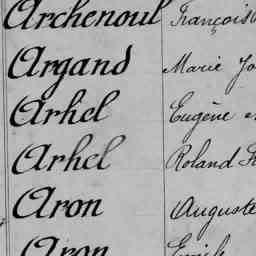 Archenoul François
Argand Marie
Arhel Eugène
Arhel Roland
Aron Auguste
Aron Emile